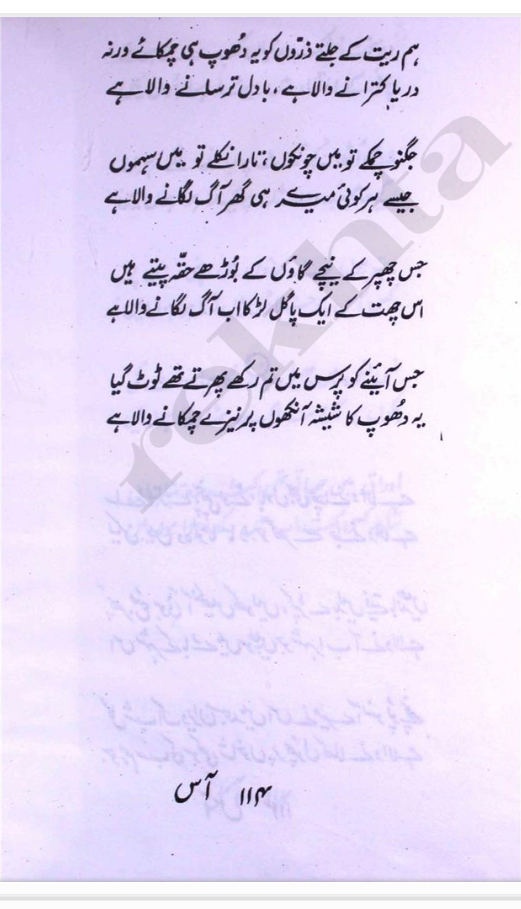 ہم ریت کے جلتے ذرّوں کو یہ دُھوپ ہی چمکائے ورنہ
دریا کترانے والا ہے، بادل ترسانے والا ہے
جگنو چمکے تو میں چونکوں، تارا نکلے تو میں سہموں
جیسے ہر کوئی میرے ہی گھر آگ لگانے والا ہے
جس چھپر کے نیچے گاؤں کے بُوڑھے حقّہ پیتے ہیں
اس چھت کے ایک پاگل لڑکا اب آگ لگانے والا ہے
جس آئینے کو پرس میں تم رکھے پھرتے تھے ٹوٹ گیا
یہ دُھوپ کا شیشہ آنکھوں پر نیزے چمکانے والا ہے
rekhta
۱۱۴ آس